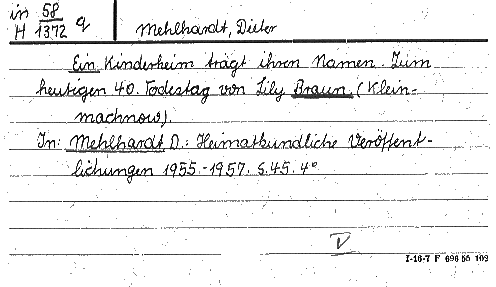 in 58 q
H 1372
Mehlhardt, Dieter
Ein Kinderheim trägt ihren Namen. Zum
heutigen 40. Todestag von Lily Braun (Klein-
machnow).
In: Mehlhardt D.: Heimatkundliche Veröffent-
lichungen 1955.-1957. S.45. 4°
V
I-16-7 F 696 55 109